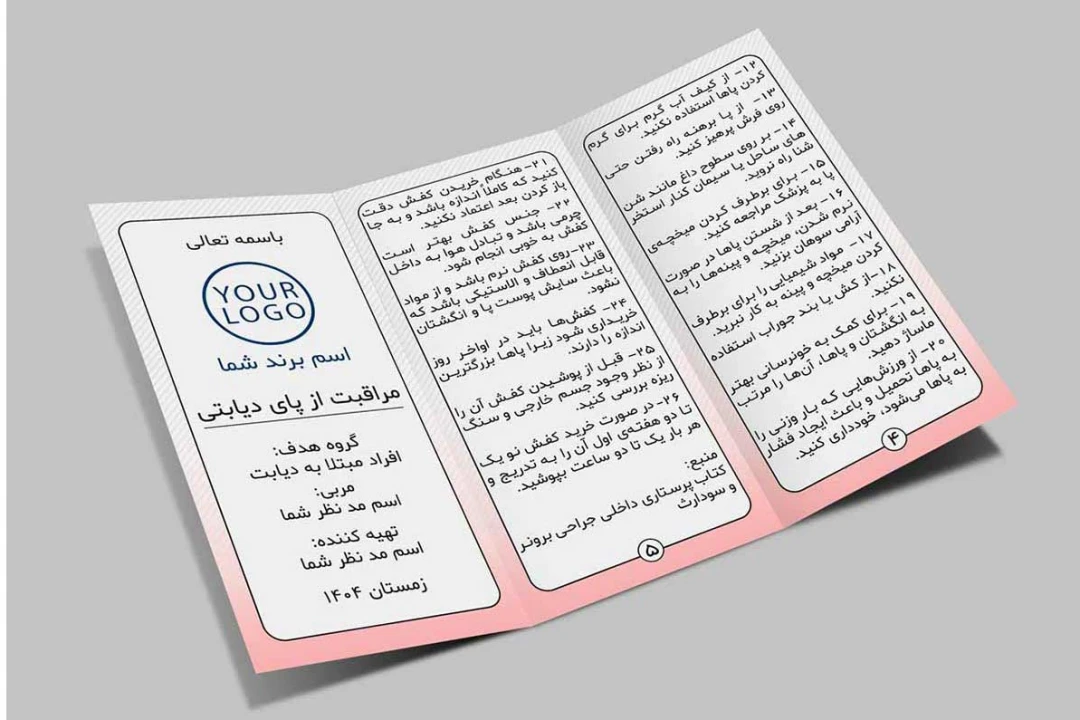 ۱۲- از کیف آب گرم برای گرم
کردن پاها استفاده نکنید.
۱۳- از پا برهنه راه رفتن حتی
روی فرش پرهیز کنید.
۱۴- بر روی سطوح داغ مانند شن
های ساحل یا سیمان کنار استخر
شنا راه نروید.
۱۵- برای برطرف کردن میخچه‌ی
پا به پزشک مراجعه کنید.
۱۶- بعد از شستن پاها در صورت
نرم شدن، میخچه و پینه‌ها را به
آرامی سوهان بزنید.
۱۷- مواد شیمیایی را برای برطرف
کردن میخچه و پینه به کار نبرید.
۱۸-از کش یا بند جوراب استفاده
نکنید.
۱۹- برای کمک به خونرسانی بهتر
به انگشتان و پاها، آن‌ها را مرتب
ماساژ دهید.
۲۰- از ورزش‌هایی که بار وزنی را
به پاها تحمیل و باعث ایجاد فشار
به پاها می‌شود، خودداری کنید.
۴
۲۱- هنگام خریدن کفش دقت
کنید که کاملاً اندازه باشد و به جا
باز کردن بعد اعتماد نکنید.
۲۲- جنس کفش بهتر است
چرمی باشد و تبادل هوا به داخل
کفش به خوبی انجام شود.
۲۳-روی کفش نرم باشد و از مواد
قابل انعطاف و الاستیکی باشد که
باعث سایش پوست پا و انگشتان
نشود.
۲۴- کفش‌ها باید در اواخر روز
خریداری شود زیرا پاها بزرگترین
اندازه را دارند.
۲۵- قبل از پوشیدن کفش آن را
از نظر وجود جسم خارجی و سنگ
ریزه بررسی کنید.
۲۶- در صورت خرید کفش نو یک
تا دو هفته‌ی اول آن را به تدریج و
هر بار یک تا دو ساعت بپوشید.
منبع:
کتاب پرستاری داخلی جراحی برونر
و سودارث
۵
باسمه تعالی
YOUR
LOGO
اسم برند شما
مراقبت از پای دیابتی
گروه هدف:
افراد مبتلا به دیابت
مربی:
اسم مد نظر شما
تهیه کننده:
اسم مد نظر شما
زمستان ۱۴۰۴